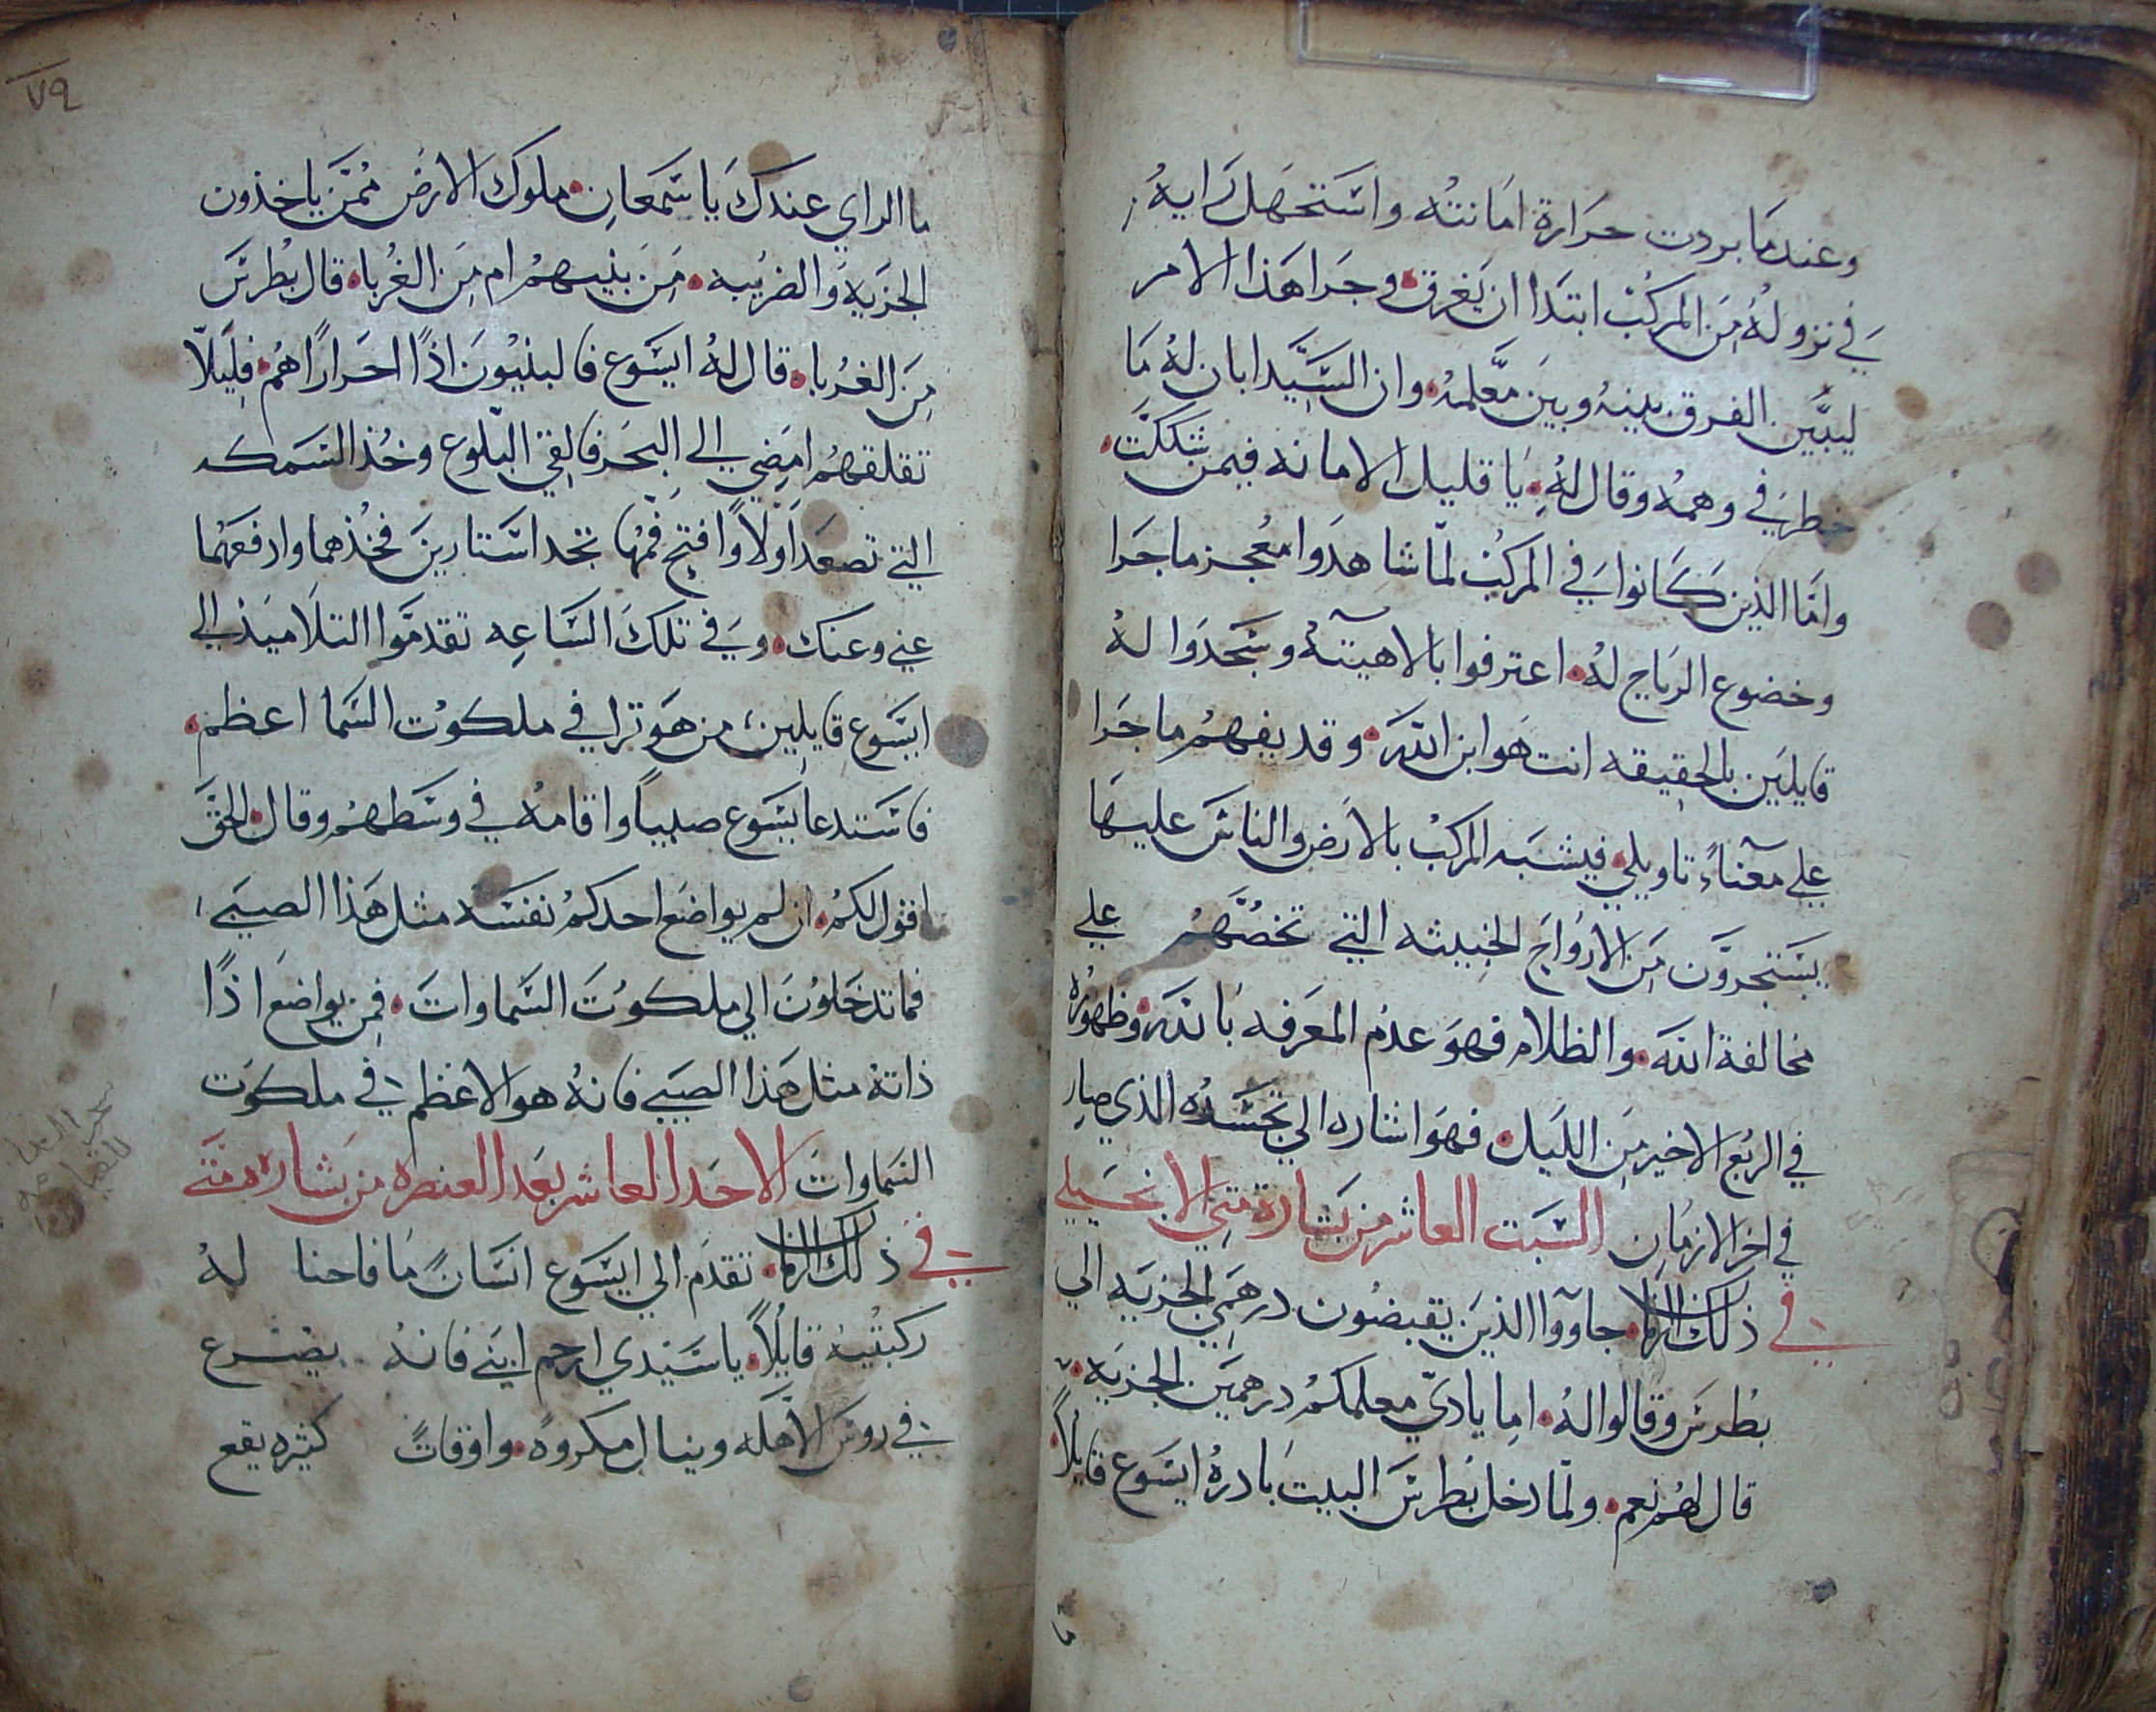 وعندما بردت حرارة امانته واستجهل رايه
في نزوله من المركب ابتدا ان يغرق وجرا هذا الامر
ليبين الفرق بينه وبين معلمه وان السيد ابان له ما
خطر في وهمه وقال له يا قليل الامانه فيمن تشككت
واما الذين كانوا في المركب لما شاهدوا معجز ما جرا
وخضوع الرياح له اعترفوا بالاهيته وسجدوا له
قايلين بالحقيقه انت هو ابن الله وقد يفهم ما جرا
علي معناء تاويلي فيشبه المركب بالارض والناس عليها
يستجرون من الارواح الخبيثه التي تخصهم علي
مخالفة الله والظلام فهو عدم المعرفه بالله وظهوره
في الربع الاخير من الليل فهو اشاره الي تجسده الذي صار
في اخر الازمان السبت العاشر من بشارة متي الانجيلي
في ذلك الزمان جاووا الذين يقبضون درهمي الجزيه الي
بطرس وقالوا له اما يادي معلمكم درهمين الجزيه
قال لهم نعم ولما دخل بطرس البيت بادره ايسوع قايلاً
ما
٧٩
ما الراي عندك يا سمعان ملوك الارض ممن ياخذون
الجزيه والضريبه من بنيهم ام من الغربا قال بطرس
من الغربا قال له ايسوع فالبنيون اذًا احرارًا هم فليلا
تقلقهم امضي الي البحر فالقي البلوع وخذ السمكه
التي تصعد اولاً وافتح فمها تجد استارين فخذهما وادفعهما
عني وعنك وفي تلك الساعه تقدموا التلاميذ الي
ايسوع قايلين من هو ترا في ملكوت السما اعظم
فاستدعا يسوع صبياً واقامه في وسطهم وقال الحق
اقول لكم ان لم يواضع احدكم نفسه مثل هذا الصبي
فما تدخلون الي ملكوت السماوات فمن يواضع اذًا
ذاته مثل هذا الصبي فانه هو الاعظم في ملكوت
السماوات الاحد العاشر بعد العنصره من بشاره متي
في ذلك الزمان تقدم الي ايسوع انسان ما فاحنا له
ركبتيه قايلاً يا سيدي ارحم ابني فانه يضرع
في روس الاهله وينال مكروه واوقات كثيره يقع